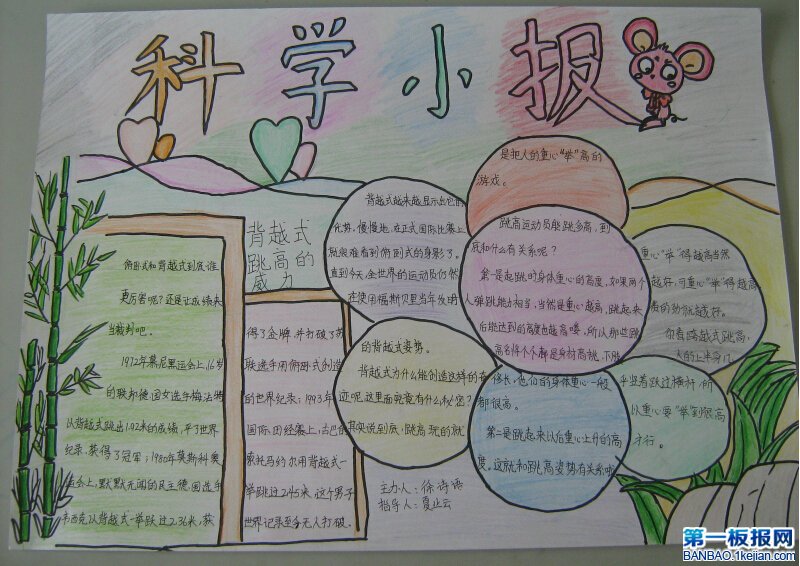 科学小报
背越式
跳高的
威力
俯卧式和背越式到底谁
更厉害呢？还是让成绩来
当裁判吧。
1972年慕尼黑运会上，16岁
的联邦德国女选手梅法特
以背越式跳出1.92米的成绩，平了世界
纪录，获得了冠军；1980年莫斯科奥
运会上，默默无闻的民主德国选手
韦西克以背越式一举跃过2.36米，获
得了金牌，并打破了苏
联选手用俯卧式创造
的世界纪录；1993年
国际田径赛上，古巴的
索托马约尔用背越式一
举跳过2.45米，这个男子
世界记录至今无人打破。
背越式越来越显示出它的
优势，慢慢地，在正式国际比赛上
就很难看到俯卧式的身影了。
直到今天，全世界的运动员仍然
在使用福斯贝里当年发明
的背越式姿势。
背越式为什么能创造这样的奇
迹呢？这里面究竟有什么秘密？
其实说到底，跳高玩的就
是把人的重心“举”高的
游戏。
跳高运动员能跳多高，到
底和什么有关系呢？
第一是起跳时身体重心的高度，如果两个
人弹跳能力相当，当然是重心越高，跳起来
后能达到的高度也越高喽，所以那些跳
高名将个个都是身材高挑，下肢
修长，他们的身体重心一般
都很高。
第二是跳起来以后重心上升的高
度，这就和跳高姿势有关系啦
重心“举”得越高当然
越好，可重心“举”得越高
费的劲就越好。
你看跨越式跳高，
人的上半身几
乎坐着跃过横杆，所
以重心要“举”到很高
才行。
主办人：徐诗语
指导人：夏止云
第一板报网
BANBAO.1kejian.com